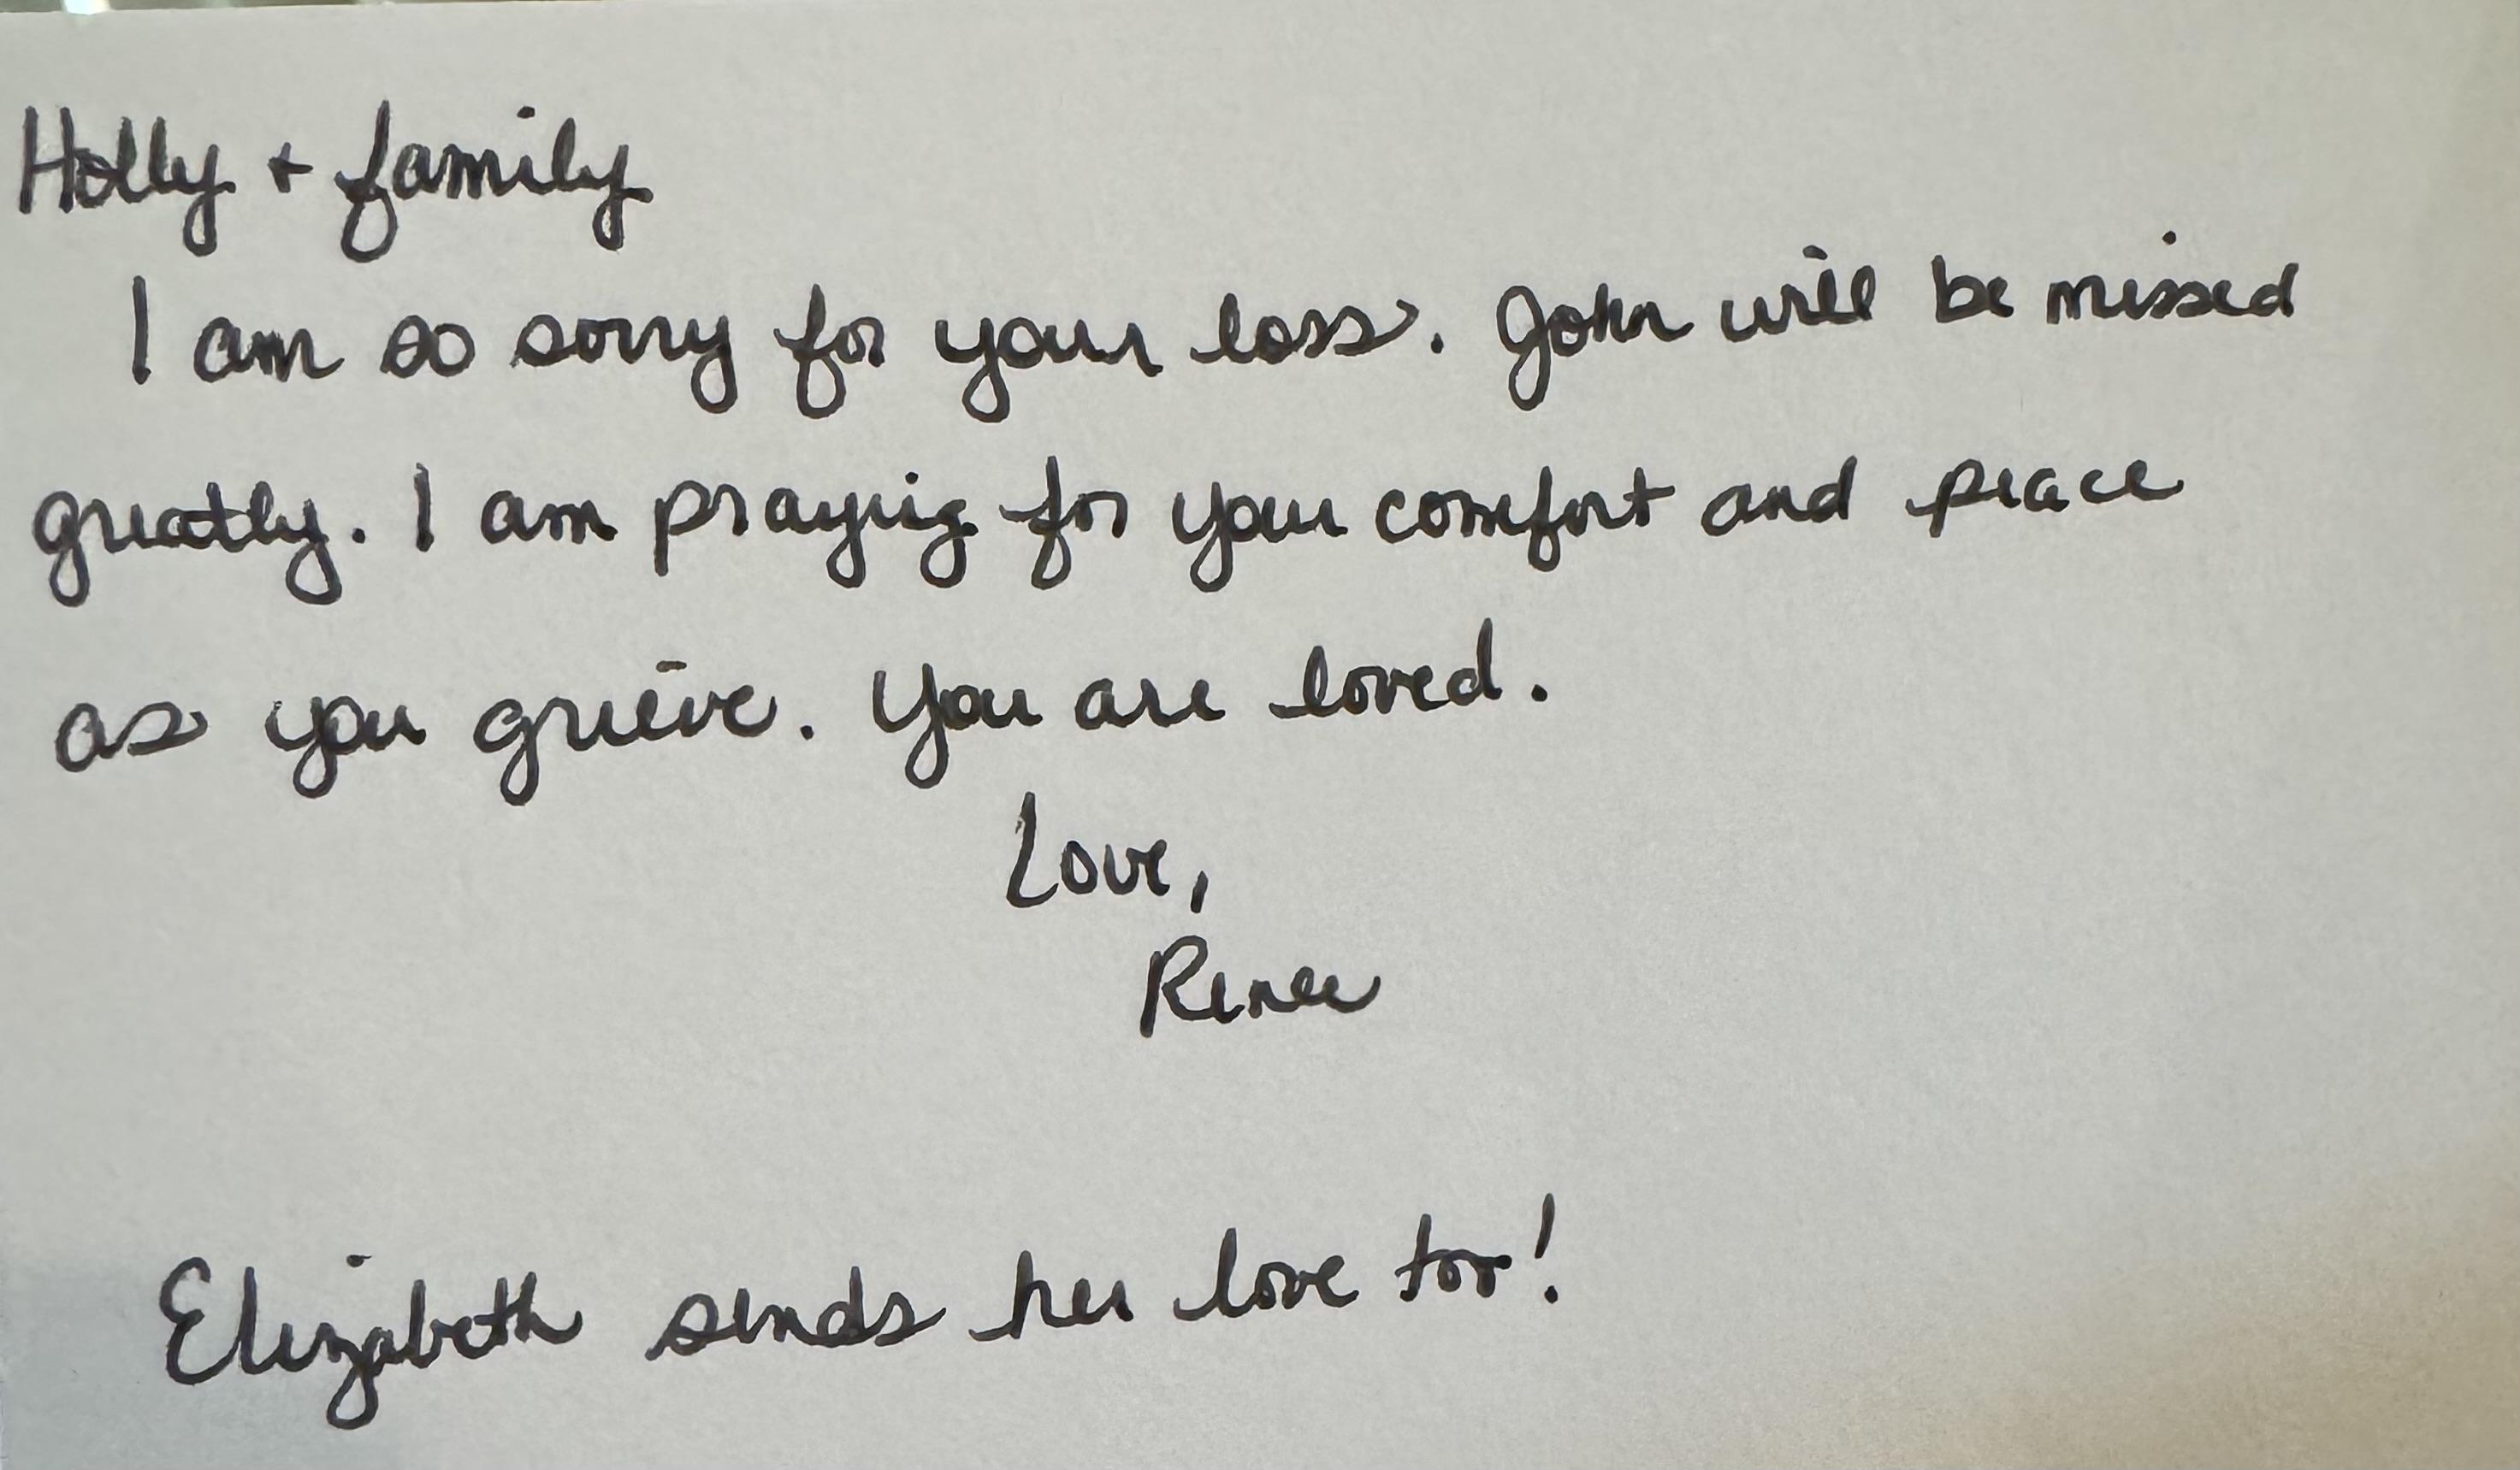 Holly + family
I am so sorry for your loss. John will be missed
greatly. I am praying for your comfort and peace
as you grieve. You are loved.
Love,
Renee
Elizabeth sends her love too!